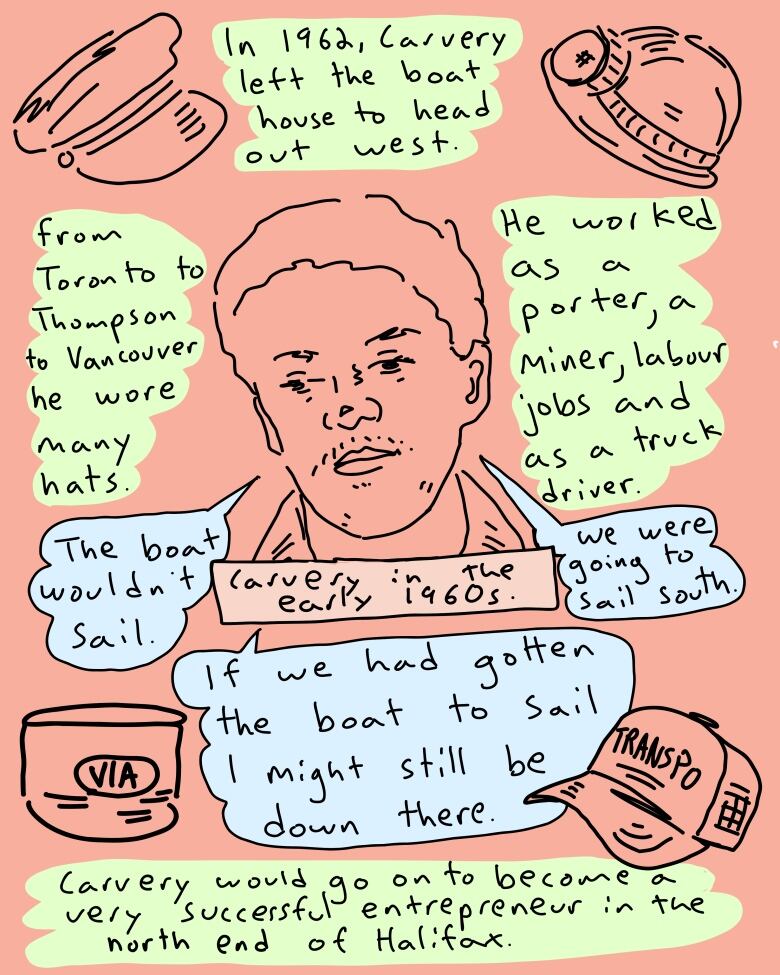 In 1962, Carvery
left the boat
house to head
out west.
from
Toronto to
Thompson
to Vancouver
he wore
many
hats.
He worked
as a
porter, a
Miner, labour
jobs and
as a truck
driver.
The boat
wouldn't
Sail.
we were
going to
sail south.
Carvery in the
early 1960s.
If we had gotten
the boat to sail
I might still be
down there.
VIA
TRANSPO
Carvery would go on to become a
very successful entrepreneur in the
north end of Halifax.